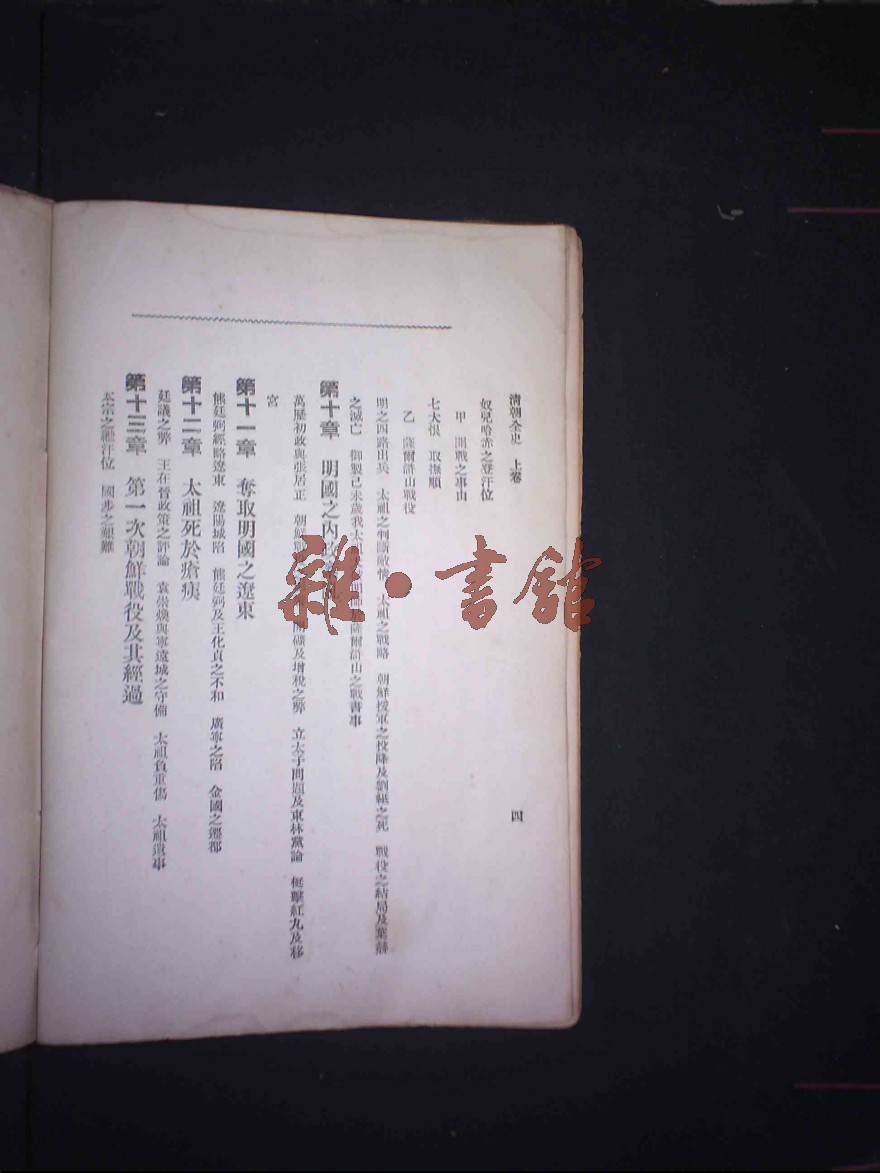 清朝全史 上卷
四
奴兒哈赤之登汗位
甲 開戰之事由
七大恨 取撫順
乙 薩爾滸山戰役
明之四路出兵 太祖之判斷敵情 太祖之戰略 朝鮮援軍之投降及劉綎之死 戰役之結局及葉赫
之滅亡 御製己未歲我太祖 明師 薩爾滸山之戰書事
第十章 明國之內
萬歷初政與張居正 朝鮮 開礦及增稅之弊 立太子問題及東林黨論 梃擊紅九及移
宮
第十一章 奪取明國之遼東
熊廷弼經略遼東 遼陽城陷 熊廷弼及王化貞之不和 廣寧之陷 金國之遷都
第十二章 太祖死於瘡痍
廷議之弊 王在晉政策之評論 袁崇煥與寧遠城之守備 太祖負重傷 太祖遺事
第十三章 第一次朝鮮戰役及其經過
太宗之継汗位 國步之艱難
雜·書館